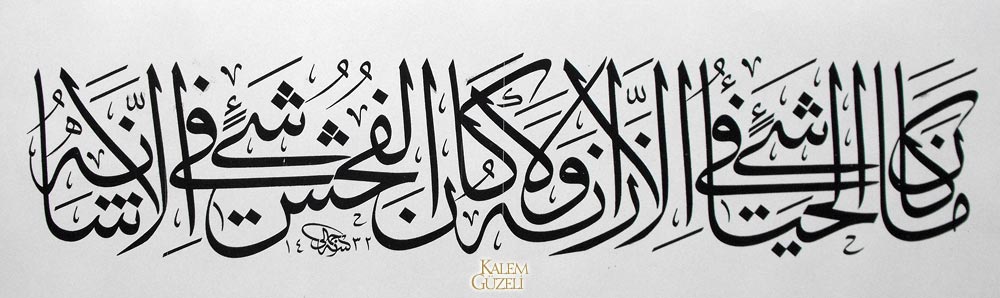 ما كان الحياء في شيء إلا زانه ولا كان الفحش في شيء إلا شانه
١٤٣٢
KALEM
GÜZELİ